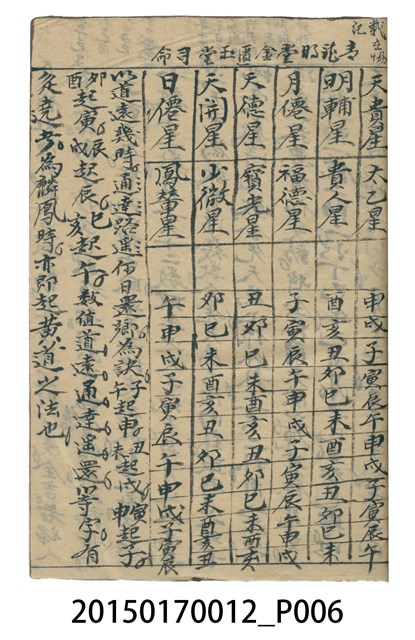 載在協記
青龍明堂金匱玉堂司命
天貴星 太乙星 申戌子寅辰午申戌子寅辰午
明輔星 貴人星 酉亥丑卯巳未酉亥丑卯巳未
月僊星 福德星 子寅辰午申戌子寅辰午申戌
天德星 寶光星 丑卯巳未酉亥丑卯巳未酉亥
天開星 少微星 卯巳未酉亥丑卯巳未酉亥丑
日僊星 鳳輦星 午申戌子寅辰午申戌子寅辰
以道遠幾時通達路遙何日還鄉為訣子午起申丑未起戌寅申起子
卯酉起寅辰戌起辰巳亥起午數值道遠通達遙還等字有
為麟鳳時亦即起黃道之法也
20150170012_P006